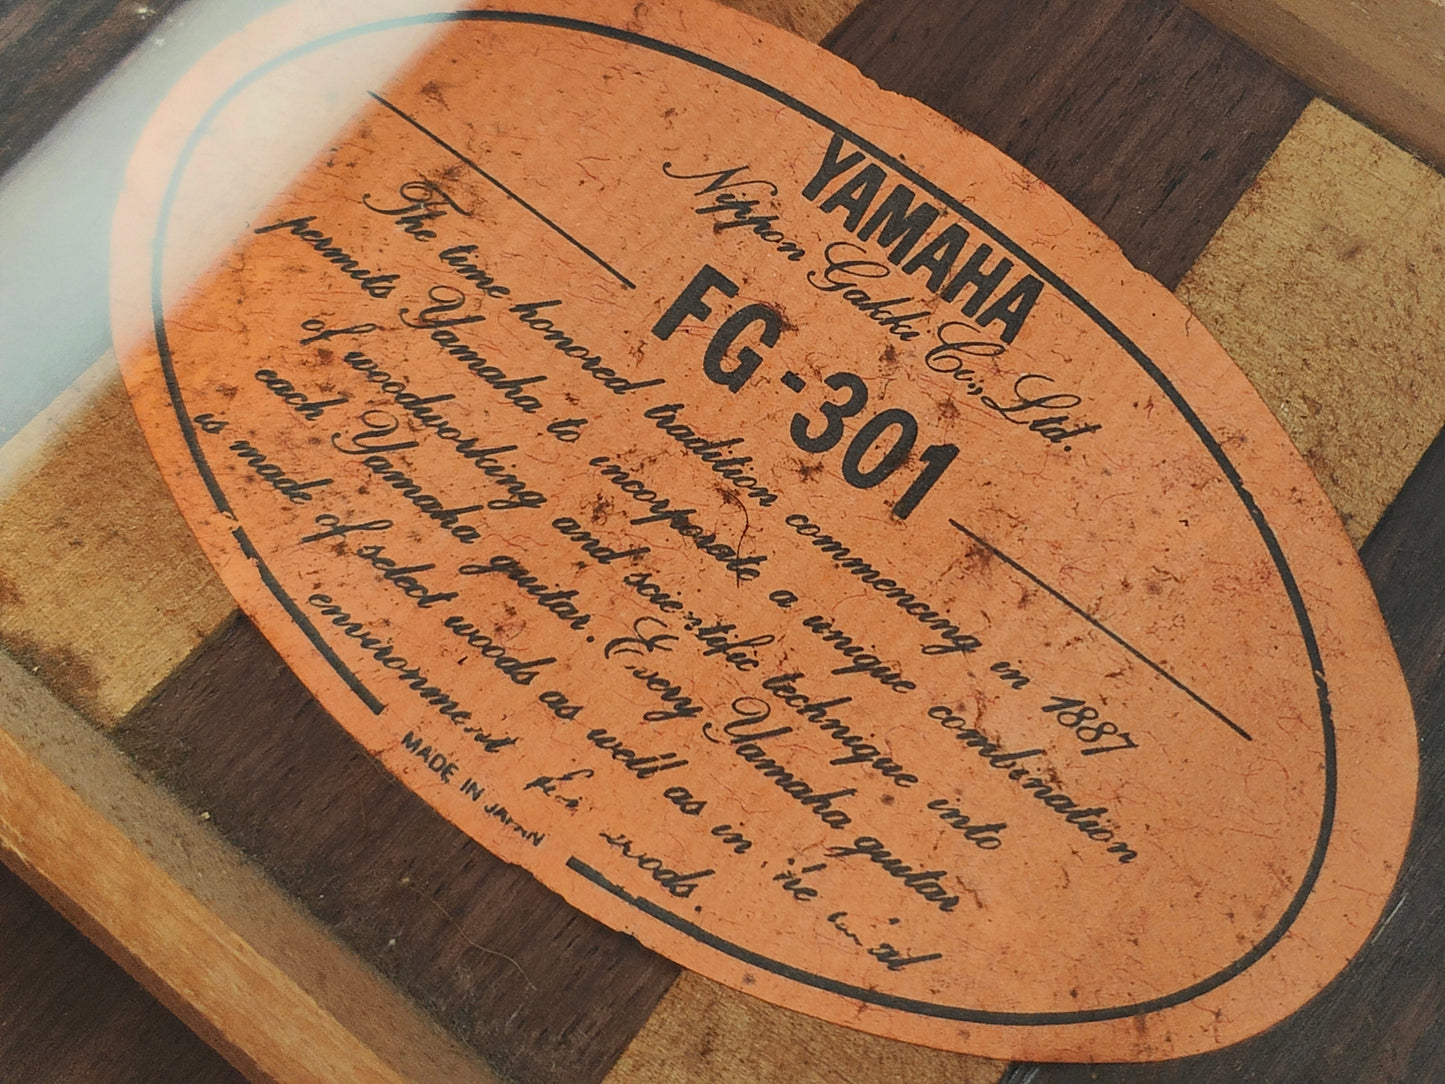 YAMAHA
Nippon Gakki Co., Ltd.
FG-301
The time honored tradition commencing in 1887
permits Yamaha to incorporate a unique combination
of woodworking and scientific technique into
each Yamaha guitar. Every Yamaha guitar
is made of select woods as well as in the
environment woods.
MADE IN JAPAN